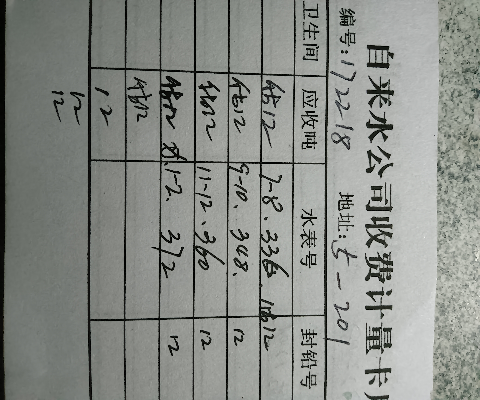 自来水公司收费计量卡片
编号:172218 地址:5-201
卫生间 应收吨 水表号 封铅号
估12 7-8、336、12
估12 9-10、348、 12
估12 11-12、360 12
估12 1-2、372 12
估12
12
12
12